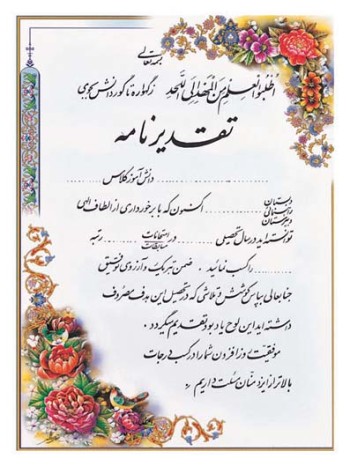 بسمه تعالی
اُطْلُبُوا الْعِلْمَ مِنَ الْمَهْدِ اِلَی اللَّحَدِ ز گهواره تا گور دانش بجوی
تقدیرنامه
.................... دانش آموز کلاس ....................
دبستان
راهنمائی .................... اکنون که با برخورداری از الطاف الهی
دبیرستان
توانسته اید در سال تحصیلی .......... در امتحانات .......... رتبه
مسابقات
.......... را کسب نمائید . ضمن تبریک و آرزوی توفیق
جنابعالی بپاس کوشش و تلاشی که در تحصیل این هدف مصروف
داشته اید این لوح یادبود تقدیم میگردد .
موفقیت روزافزون شما را در کسب درجات
بالاتر از ایزد منان مسئلت داریم